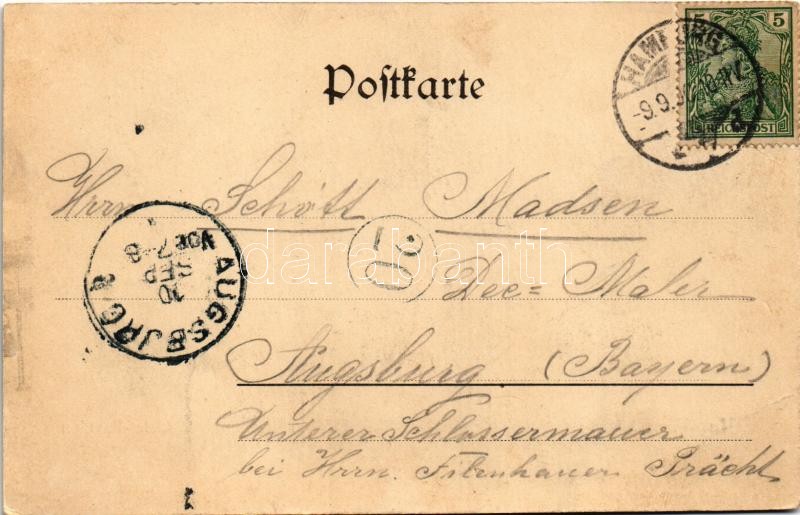 Postkarte
5 5
REICHSPOST
HAMBURG
-9.9.
Herrn Schött Madsen
Dec= Maler
Augsburg (Bayern)
Unterer Schlossermauer
bei Herrn Prächt
AUGSBURG
10
SEP
7-8
darabanth